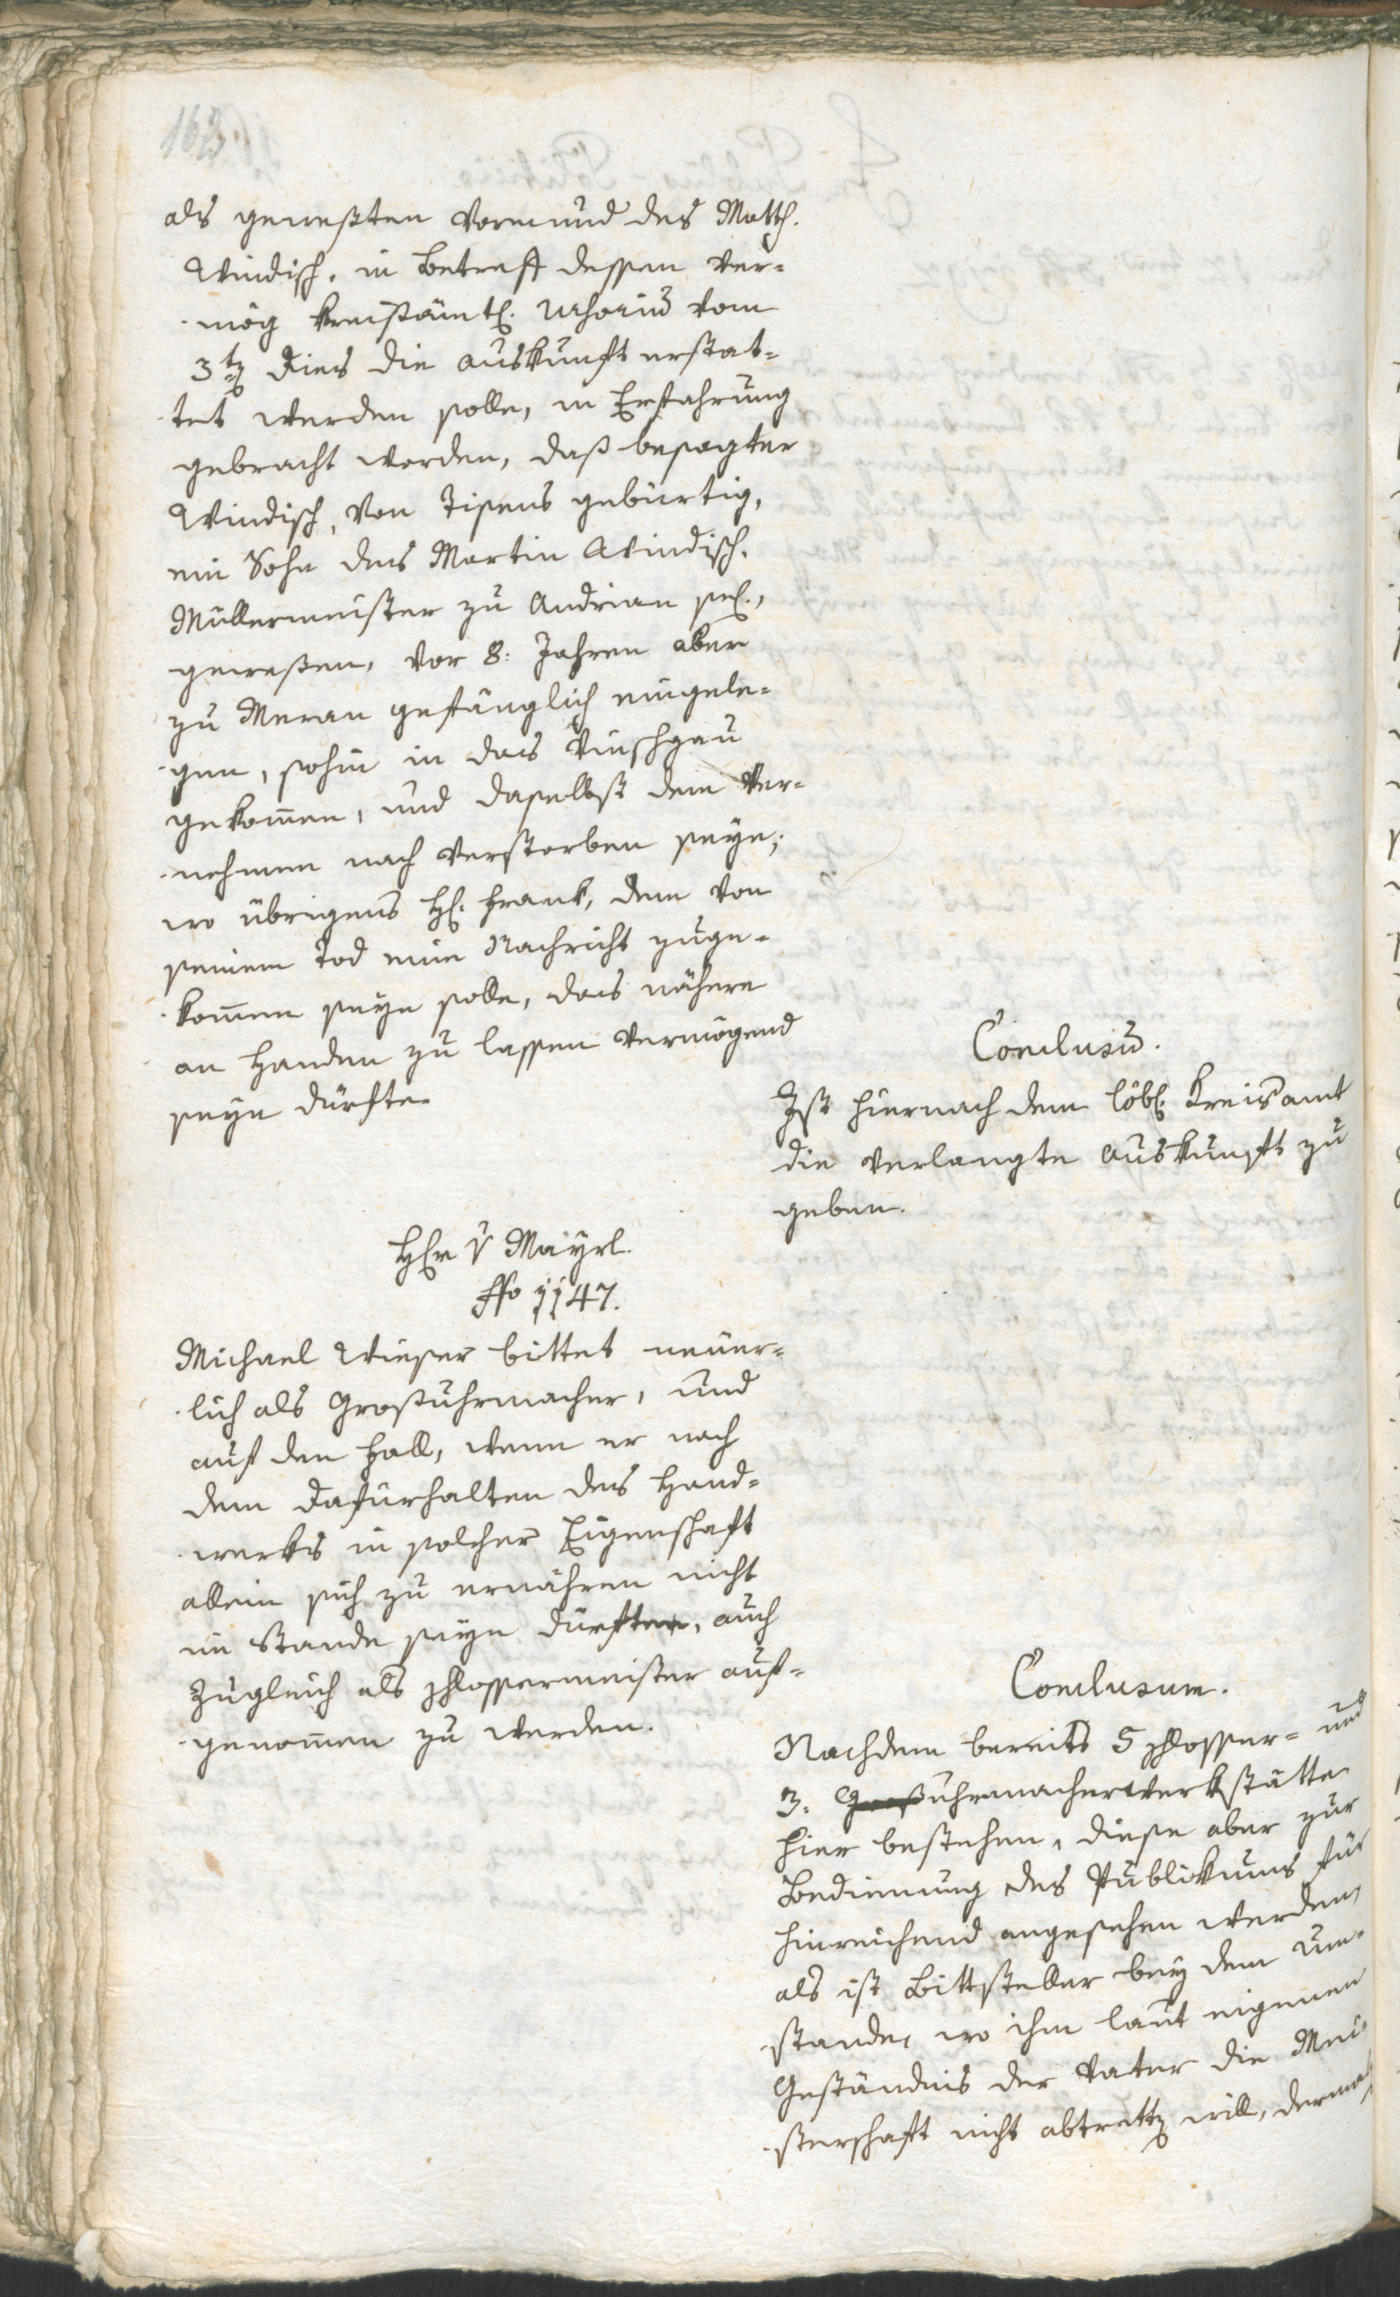 163
als geweßten Vormund des Matth.
Windisch, in betreff dessen ver-
mög kreisämtl. rithori͞u vom
3ten dies die Auskunft erstat-
tet werden solle, in Erfahrung
gebracht worden, daß besagter
Windisch, von Tisens gebürtig,
ein Sohn des Martin Windisch,
Müllermeister zu Andrian sel.,
gewesen, vor 8: Jahren aber
zu Meran gefänglich eingele-
gen, sohin in das Vinschgau
gekom̄en, und daselbst dem Ver-
nehmen nach verstorben seye;
wo übrigens H. Frank, dem von
seinem Tod eine Nachricht zuge-
kom̄en seyn solle, das nähere
an Handen zu lassen vermögend
seyn dürfte.
Conclusu͞.
Ist hiernach dem löbl. Kreisamt
die verlangte Auskunft zu
geben.
Hr v Mayrl.
No 1147.
Michael Wieser bittet neuer-
lich als Großuhrmacher, und
auf den Fall, wenn er nach
dem Dafürhalten des Hand-
werks in solcher Eigenschaft
allein sich zu ernähren nicht
im Stande seyn dürfte, auch
zugleich als Schlossermeister auf-
genom̄en zu werden.
Conclusum.
Nachdem bereits 5 Schlosser- und
3. Großuhrmacherwerkstätte
hier bestehen, diese aber zur
Bedienung des Publikums für
hinreichend angesehen werden,
als ist Bittsteller bey dem Um-
stande, wo ihm laut eigenen
Geständnis der Vater die Mei-
sterschaft nicht abtretten will, dermal